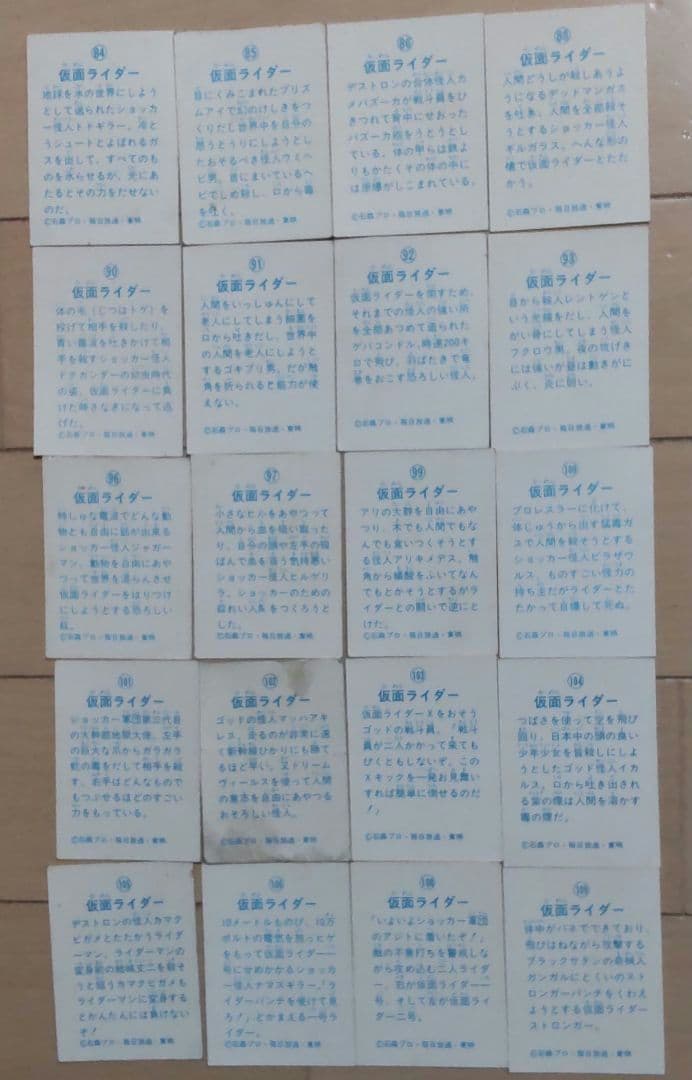 84
仮面ライダー
地球を水の世界にしよう
として送られたショッカ
ー怪人トドギラー。冷と
うシュートとよばれるガ
スを出して、すべてのも
のを氷らせるが、火にあ
たるとその力をだせない
のだ。
©石森プロ・毎日放送・東映
85
仮面ライダー
目にくみこまれたプリズ
ムアイで幻のけしきをつ
くりだし世界中を自分の
思うとうりにしようとし
たおそるべき怪人ウミヘ
ビ男。首にまいているヘ
ビでしめ殺し、口から毒
を吐く。
©石森プロ・毎日放送・東映
86
仮面ライダー
デストロンの合体怪人カ
メバズーカが戦斗員をひ
きつれて背中にせおった
バズーカ砲をうとうとし
ている。体の甲らは鉄よ
りもかたくその体の中に
は原爆がしこまれている。
©石森プロ・毎日放送・東映
88
仮面ライダー
人間どうしが殺しあうよ
うになるデットマンガス
を吐き、人間を全部殺そ
うとするショッカー怪人
ギルガラス。へんな形の
槍で仮面ライダーとたた
かう。
©石森プロ・毎日放送・東映
90
仮面ライダー
体の毛（じつはトゲ）を
投げて相手を殺したり、
青い毒液を吐きかけて相
手を殺すショッカー怪人
ドクガンダーの幼虫時代
の姿。仮面ライダーに負
けた時さなぎになって逃
げた。
©石森プロ・毎日放送・東映
91
仮面ライダー
人間をいっしゅんにして
老人にしてしまう細菌を
口から吐きだし、世界中
の人間を老人にしようと
するゴキブリ男。だが触
角を折られると能力が使
えない。
©石森プロ・毎日放送・東映
92
仮面ライダー
仮面ライダーを倒すため、
それまでの怪人の強い所
を全部あつめて造られた
ゲバコンドル。時速200キ
ロで飛び、羽ばたきで竜
巻をおこす恐ろしい怪人。
©石森プロ・毎日放送・東映
93
仮面ライダー
目から殺人レントゲンと
いう光線をだし、人間を
がい骨にしてしまう怪人
フクロウ男。夜の攻げき
には強いが昼は動きがに
ぶく、火に弱い。
©石森プロ・毎日放送・東映
96
仮面ライダー
特しゅな電波でどんな動
物とも自由に話が出来る
ショッカー怪人ジャガー
マン。動物を自由にあや
つって世界を混らんさせ
仮面ライダーをはりつけ
にしようとする恐ろしい
奴。
©石森プロ・毎日放送・東映
97
仮面ライダー
小さなヒルをあやつって
人間から血を吸い取った
り、自分の頭や左手の吸
ばんで血を吸う気持悪い
ショッカー怪人ヒルゲリ
ラ。ショッカーのための
奴れい人民をつくろうと
した。
©石森プロ・毎日放送・東映
99
仮面ライダー
アリの大群を自由にあや
つり、木でも人間でもな
んでも食いつくそうとす
る怪人アリキメデス。触
角から蟻酸をふいてなん
でもとかそうとするがラ
イダーとの闘いで逆にと
けた。
©石森プロ・毎日放送・東映
100
仮面ライダー
プロレスラーに化けて、
体じゅうから出す猛毒ガ
スで人間を殺そうとする
ショッカー怪人ピラザウ
ルス。ものすごい怪力の
持ち主だがライダーとた
たかって自爆して死ぬ。
©石森プロ・毎日放送・東映
101
仮面ライダー
ショッカー軍団第三代目
の大幹部地獄大使。左手
の巨大な爪からガラガラ
蛇の毒をだして相手を殺
す。右手はどんなもので
もつぶせるほどのすごい
力をもっている。
©石森プロ・毎日放送・東映
102
仮面ライダー
ゴッドの怪人マッハアキ
レス。走るのが非常に速
く新幹線ひかりにも勝て
るほど早い。又ドリーム
ヴィールスを使って人間
の意志を自由にあやつる
おそろしい怪人。
©石森プロ・毎日放送・東映
103
仮面ライダー
仮面ライダーXをおそう
ゴッドの戦斗員。「戦斗
員が二人かかって来ても
びくともしないぞ。この
Xキックを一発お見舞い
すれば簡単に倒せるのだ
！」
©石森プロ・毎日放送・東映
104
仮面ライダー
つばさを使って空を飛び
回り、日本中の頭の良い
少年少女を皆殺しにしよ
うとしたゴッド怪人イカ
ルス。口から吐き出され
る紫の煙は人間を溶かす
毒の煙だ。
©石森プロ・毎日放送・東映
105
仮面ライダー
デストロンの怪人カマク
ビガメとたたかうライダ
ーマン。ライダーマンの
変身前の結城丈二を殺そ
うと狙うカマクビガメも
ライダーマンに変身する
とかんたんには負けない
ぞ！
©石森プロ・毎日放送・東映
106
仮面ライダー
10メートルものび、10万
ボルトの電気を放つヒゲ
をもって仮面ライダー一
号にせめかかるショッカ
ー怪人ナマズギラー。「ラ
イダーパンチを受けて見
ろ！」とかまえる一号ラ
イダー。
©石森プロ・毎日放送・東映
108
仮面ライダー
「いよいよショッカー軍団
のアジトに着いたぞ！」
敵の不意打ちを警戒しな
がら攻め込む二人ライダ
ー。右が仮面ライダー一
号、そして左が仮面ライ
ダー二号。
©石森プロ・毎日放送・東映
109
仮面ライダー
体中がバネでできており、
飛びはねながら攻撃する
ブラックサタンの奇械人
ガンガルにとくいのスト
ロンガーパンチをくわえ
ようとする仮面ライダー
ストロンガー。
©石森プロ・毎日放送・東映